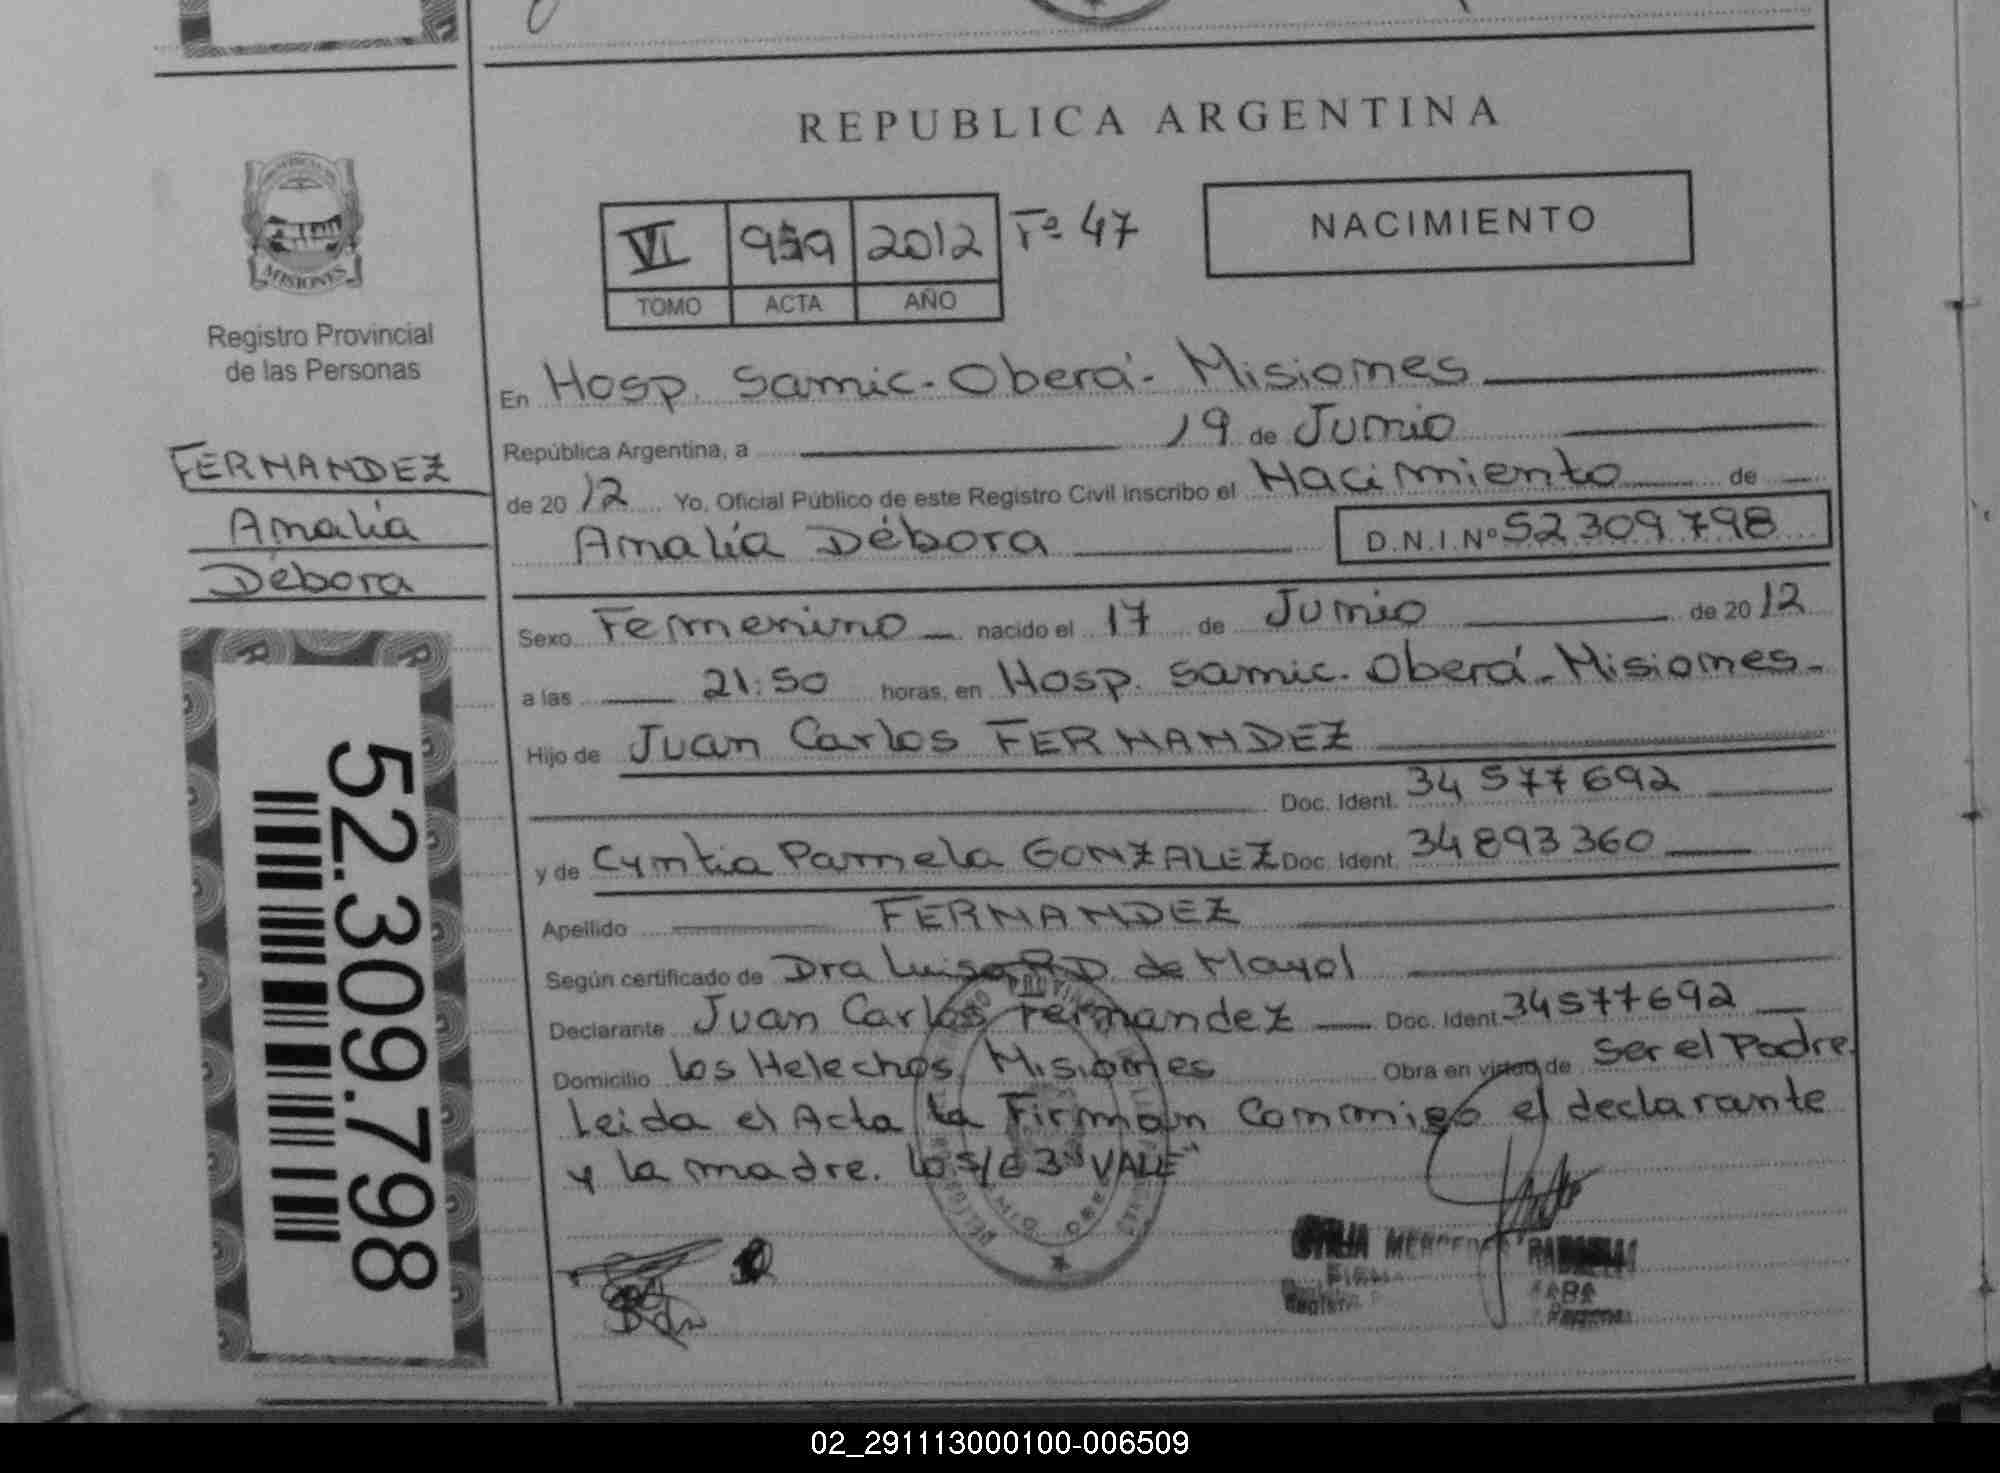 REPUBLICA ARGENTINA
MISIONES
Registro Provincial
de las Personas
FERNANDEZ
Amalia
Débora
52.309.798
VI 959 2012 Fº 47
TOMO ACTA AÑO
NACIMIENTO
En Hosp. Samic - Oberá - Misiones
República Argentina, a 19 de Junio
de 2012 Yo, Oficial Público de este Registro Civil inscribo el Nacimiento de
Amalia Débora D.N.I. Nº 52 309 798
Sexo Femenino nacido el 17 de Junio de 2012
a las 21:50 horas, en Hosp. Samic. Oberá - Misiones -
Hijo de Juan Carlos FERNANDEZ
Doc. Ident. 34 577 692
y de Cyntia Pamela GONZALEZ Doc. Ident. 34 893 360
Apellido FERNANDEZ
Según certificado de Dra Luisa R D. de Mayol
Declarante Juan Carlos Fernandez Doc. Ident. 34577692
Domicilio Los Helechos Misiones Obra en virtud de Ser el Padre.
Leida el Acta la Firman Conmigo el declarante
y la madre. Lo s/e 3 "VALE"
MERCEDES
02_291113000100-006509